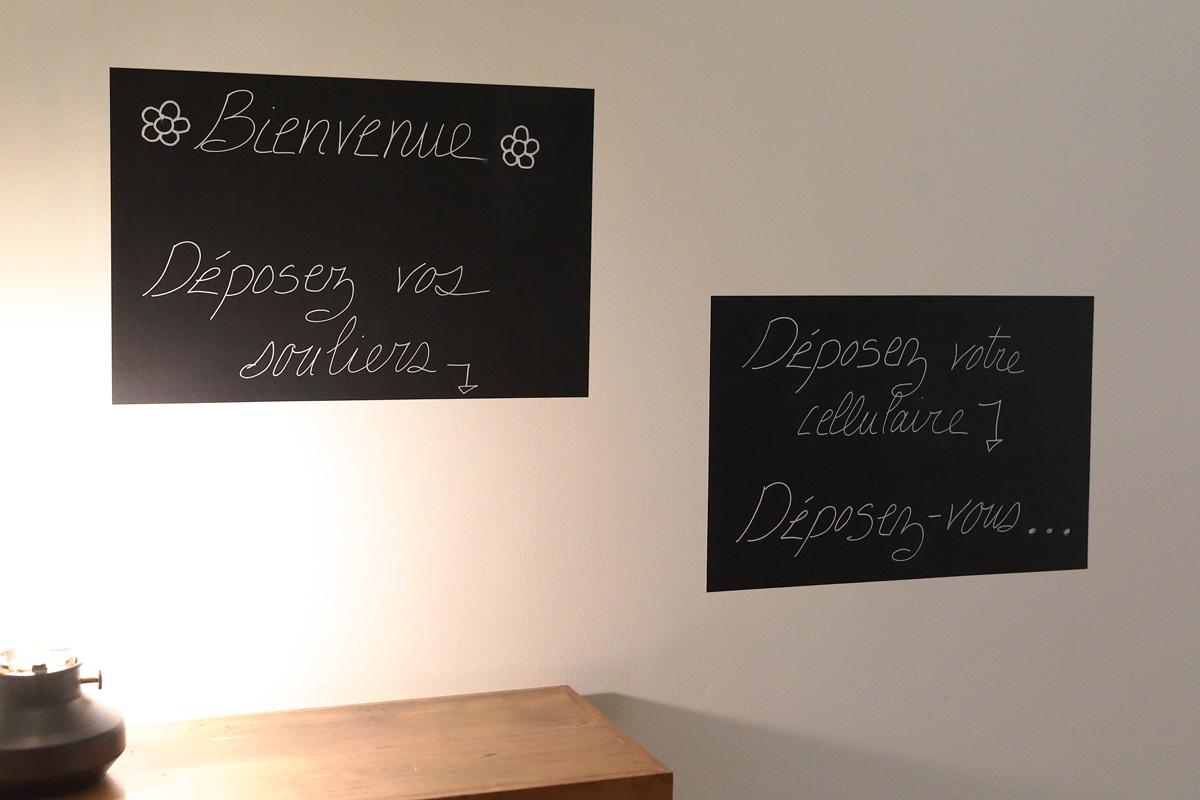 Bienvenue
Déposez vos
souliers
Déposez votre
cellulaire
Déposez-vous...